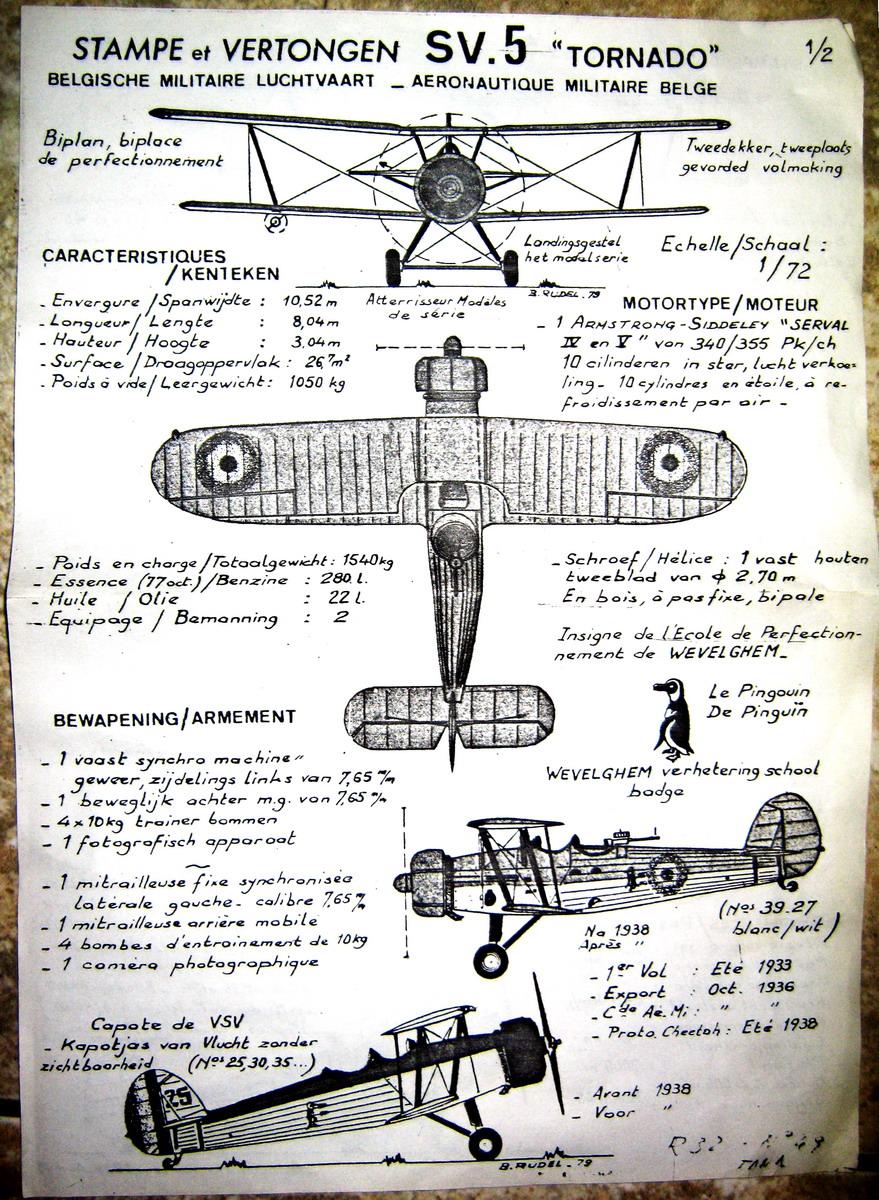 STAMPE et VERTONGEN SV.5 "TORNADO"
1/2
BELGISCHE MILITAIRE LUCHTVAART _ AERONAUTIQUE MILITAIRE BELGE
Biplan, biplace
de perfectionnement
Tweedekker, tweeplaats
gevorded volmaking
CARACTERISTIQUES
/KENTEKEN
Landingsgestel
het modulserie
Echelle/Schaal :
1/72
Atterrisseur Modèles
de série
B.RUDEL.79
- Envergure/Spanwijdte : 10,52m
- Longueur/Lengte : 8,04m
- Hauteur/Hoogte : 3,04m
- Surface/Draagoppervlak : 26,7m²
- Poids à vide/Leergewicht: 1050 kg
MOTORTYPE/MOTEUR
- 1 ARMSTRONG-SIDDELEY "SERVAL
IV en V" van 340/355 Pk/ch
10 cilinderen in star, lucht verkoe=
ling- 10 cylindres en étoile, à re-
froidissement par air -
- Poids en charge/Totaalgewicht: 1540kg
- Essence (77oct.)/Benzine : 280 l.
- Huile / Olie : 22 l.
- Equipage / Bemanning : 2
- Schroef/Hélice : 1 vast houten
tweeblad van ϕ 2,70 m
En bois, à pas fixe, bipale
Insigne de l'Ecole de Perfection-
nement de WEVELGHEM_
Le Pingouin
De Pinguïn
WEVELGHEM verhetering school
badge
BEWAPENING/ARMEMENT
- 1 vaast synchro machine"
geweer, zijdelings links van 7,65 m/m
- 1 beweglijk achter m.g. van 7,65 m/m
- 4x10kg trainer bommen
- 1 fotografisch apparaat
~
- 1 mitrailleuse fixe synchronisée
latérale gauche- calibre 7,65 m/m
- 1 mitrailleuse arrière mobile
- 4 bombes d'entrainement de 10kg
- 1 caméra photographique
Na 1938
Après "
(Nos 39.27
blanc/wit)
- 1er Vol : Eté 1933
- Export : Oct. 1936
- Cde Aé.Mi: " "
- Proto. Cheetah : Eté 1938
Capote de VSV
- Kapotjas van Vlucht zonder
zichtbaarheid (Nos 25,30,35...)
25
- Avant 1938
- Voor "
B.RUDEL-79